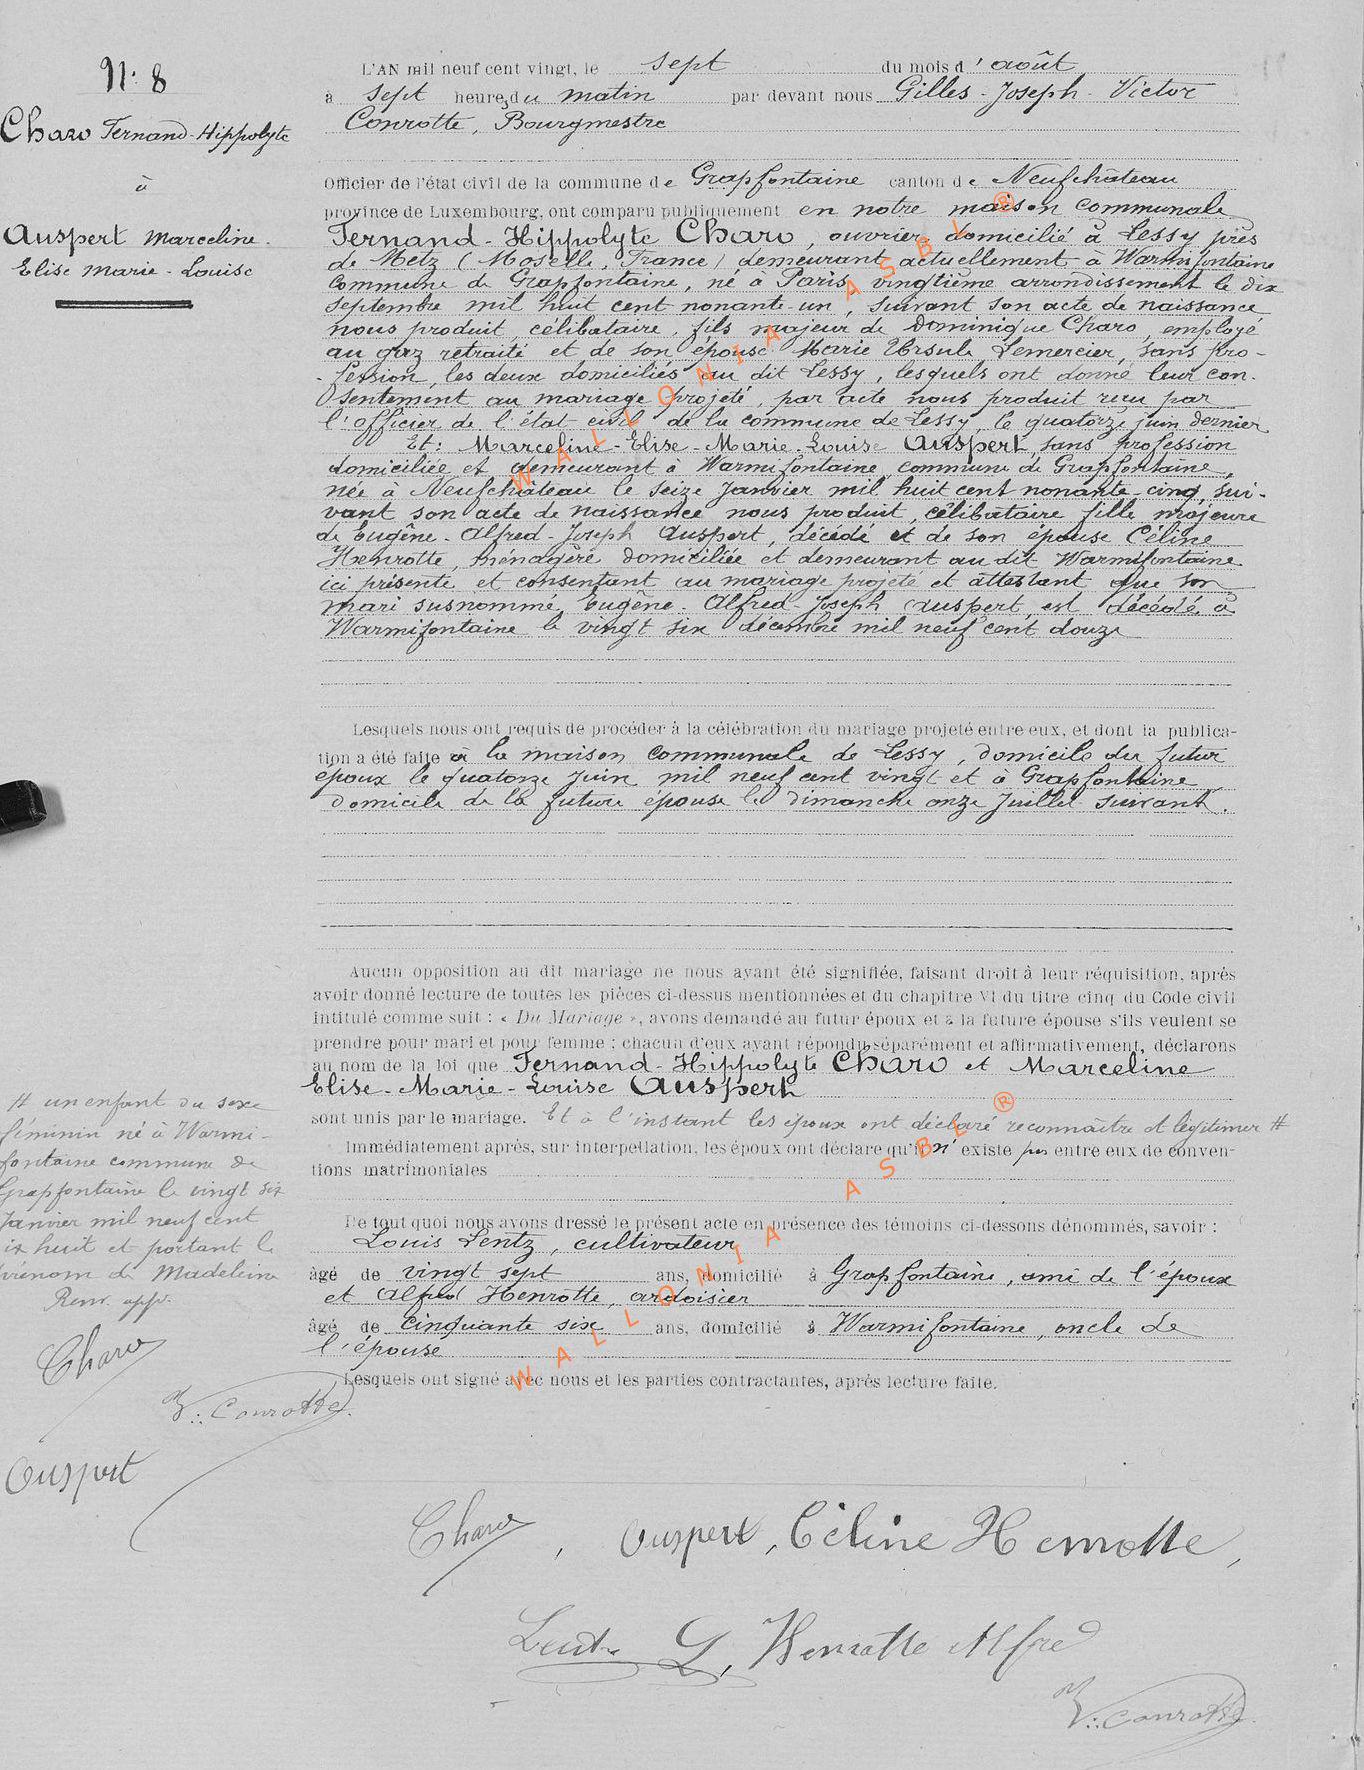 N: 8
Charo Fernand-Hippolyte
à
Auspert Marceline.
Elise Marie-Louise
L'AN mil neuf cent vingt, le sept du mois d'août
à sept heures du matin par devant nous Gilles-Joseph-Victor
Conrotte, Bourgmestre
Officier de l'état civil de la commune de Grapfontaine canton de Neufchâteau
province de Luxembourg, ont comparu publiquement en notre maison communale
Fernand-Hippolyte Charo, ouvrier domicilié à Lessy près
de Metz (Moselle, France) demeurant actuellement à Warmifontaine
commune de Grapfontaine, né à Paris, vingtième arrondissement le dix
septembre mil huit cent nonante-un, suivant son acte de naissance
nous produit, célibataire, fils majeur de Dominique Charo, employé
au gaz retraité et de son épouse Marie Ursule Lemercier, sans pro-
fession, les deux domiciliés au dit Lessy, lesquels ont donné leur con-
sentement au mariage projeté, par acte nous produit reçu par
l'officier de l'état civil de la commune de Lessy, le quatorze juin dernier
Et: Marceline-Elise-Marie-Louise Auspert, sans profession
domiciliée et demeurant à Warmifontaine, commune de Grapfontaine,
née à Neufchâteau le seize Janvier mil huit cent nonante-cinq, sui-
vant son acte de naissance nous produit, célibataire fille majeure
de Eugêne-Alfred-Joseph Auspert, décédé et de son épouse Céline
Henrotte, ménagère domiciliée et demeurant au dit Warmifontaine
ici présente et consentant au mariage projeté et attestant que son
mari susnommé, Eugêne-Alfred-Joseph Auspert, est décédé à
Warmifontaine le vingt six décembre mil neuf cent douze
Lesquels nous ont requis de procéder à la célébration du mariage projeté entre eux, et dont la publica-
tion a été faite à la maison communale de Lessy, domicile du futur
époux le quatorze juin mil neuf cent vingt et à Grapfontaine
domicile de la future épouse le dimanche onze Juillet suivant.
Aucun opposition au dit mariage ne nous ayant été signifiée, faisant droit à leur réquisition, après
avoir donné lecture de toutes les pièces ci-dessus mentionnées et du chapitre VI du titre cinq du Code civil
intitulé comme suit : « Du Mariage », avons demandé au futur époux et à la future épouse s'ils veulent se
prendre pour mari et pour femme ; chacun d'eux ayant répondu séparément et affirmativement, déclarons
au nom de la loi que Fernand-Hippolyte Charo et Marceline
Elise-Marie-Louise Auspert
sont unis par le mariage. Et à l'instant les époux ont déclaré reconnaître et légitimer #
# un enfant du sexe
féminin né à Warmi-
fontaine commune de
Grapfontaine le vingt six
Janvier mil neuf cent
ix huit et portant le
prénom de Madeleine
Renv. app.
Charo
V:: Conrotte
Auspert
Immédiatement après, sur interpellation, les époux ont déclaré qu'il n'existe pas entre eux de conven-
tions matrimoniales
De tout quoi nous avons dressé le présent acte en présence des témoins ci-dessons dénommés, savoir :
Louis Lentz, cultivateur
âgé de vingt sept ans, domicilié à Grapfontaine, ami de l'époux
et Alfred Henrotte, ardoisier
âgé de cinquante six ans, domicilié à Warmifontaine, oncle de
l'épouse
Lesquels ont signé avec nous et les parties contractantes, après lecture faite.
Charo, Auspert, Céline Henrotte,
Lentz L, Henrotte Alfred
V:: Conrotte
WALLONIA ASBL ®
WALLONIA ASBL ®